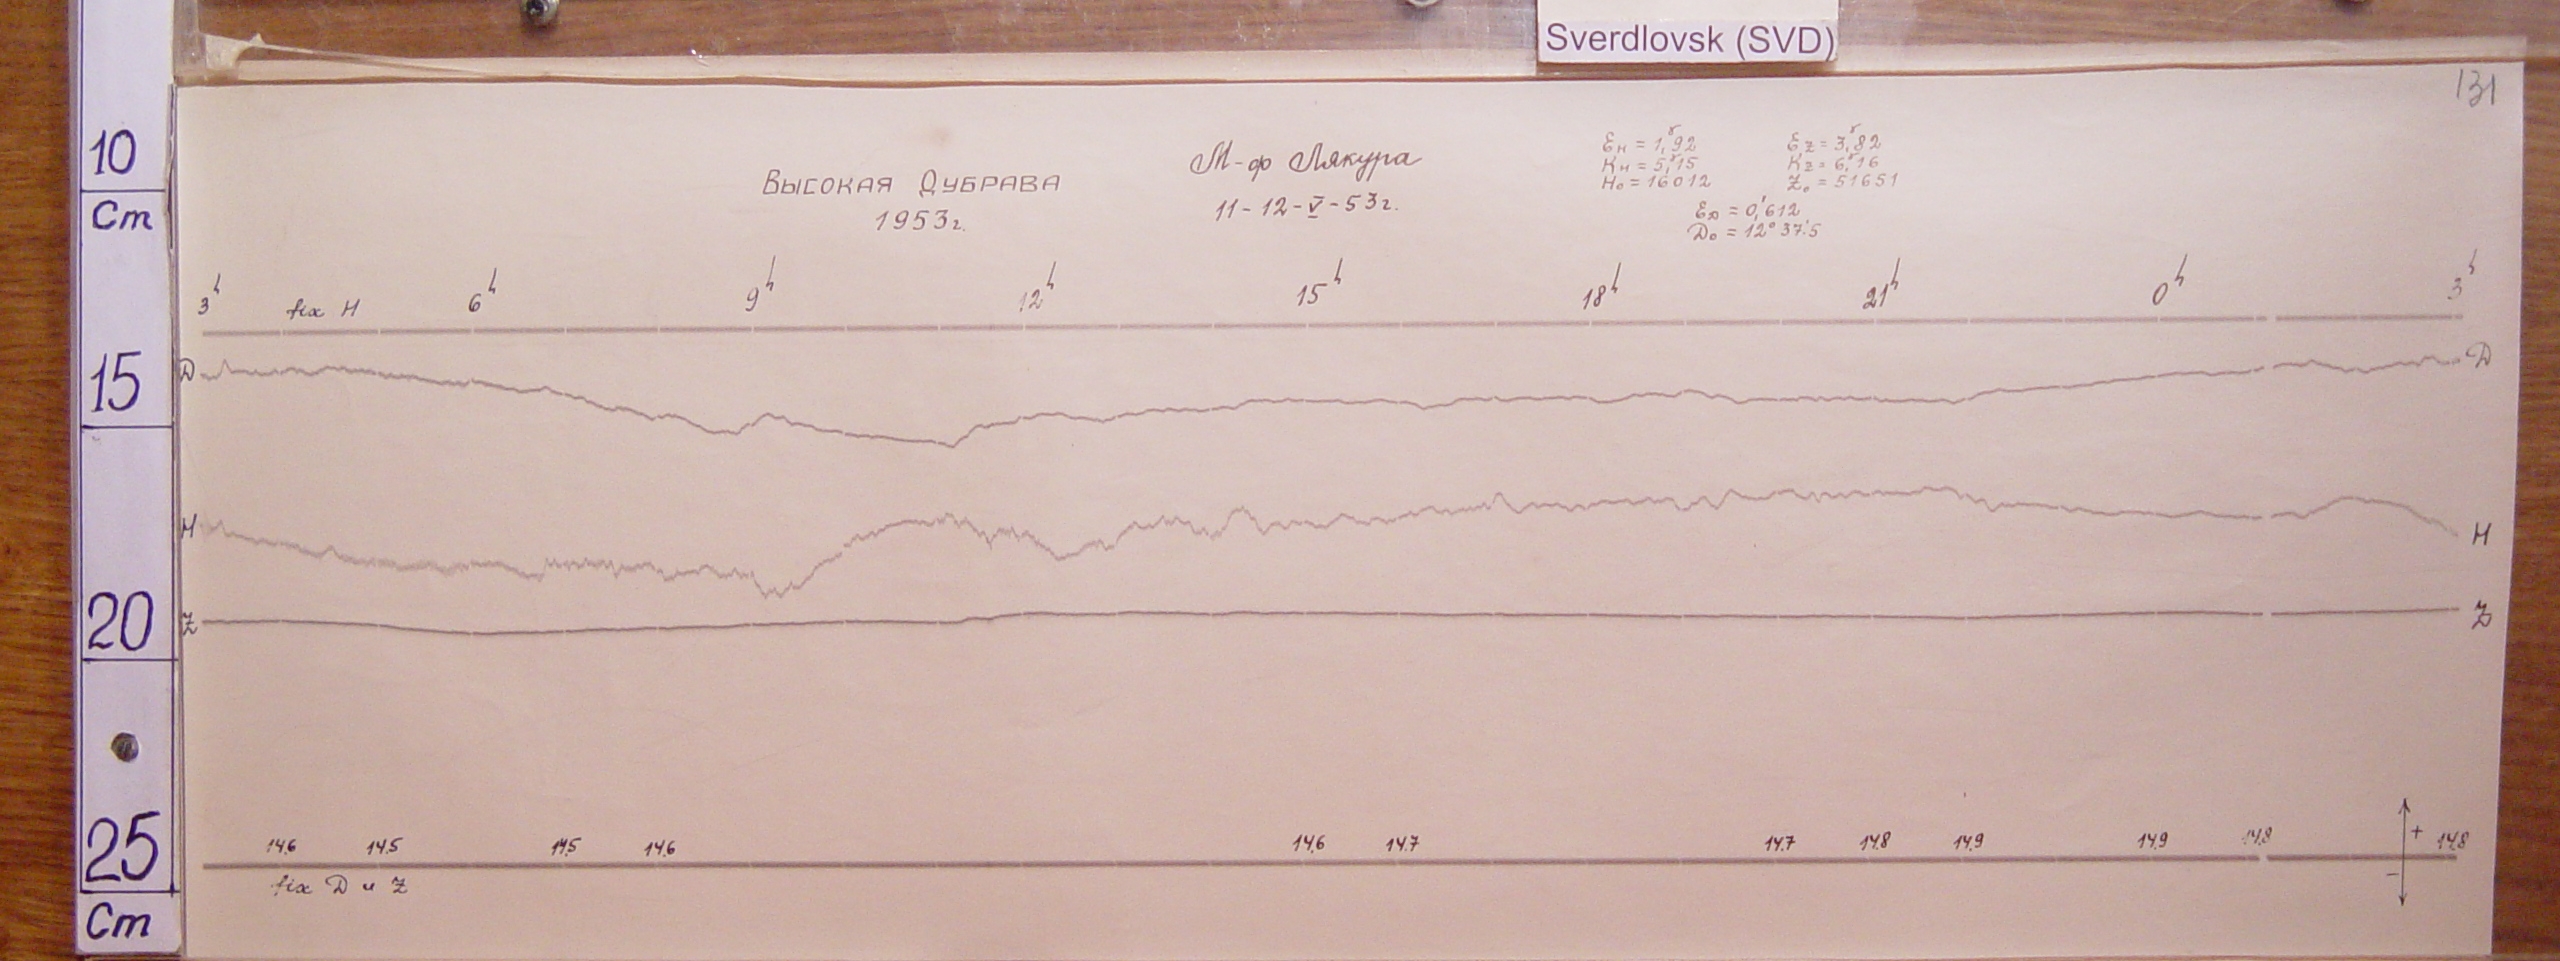 Sverdlovsk (SVD)
131
10
Cm
15
20
25
Cm
Высокая Дубрава
1953г.
М-ф Лякура
11-12-V-53г.
Eн = 1,ᵞ92
Kн = 5,ᵞ15
H₀ = 16012
Ez = 3,ᵞ82
Kz = 6,ᵞ16
Z₀ = 51651
E_D = 0,'612
D₀ = 12° 37.'5
3ʰ fix H 6ʰ 9ʰ 12ʰ 15ʰ 18ʰ 21ʰ 0ʰ 3ʰ
D D
H H
Z Z
14,6 14,5 14,5 14,6 14,6 14,7 14,7 14,8 14,9 14,9 14,9 14,8
+
−
fix D и Z